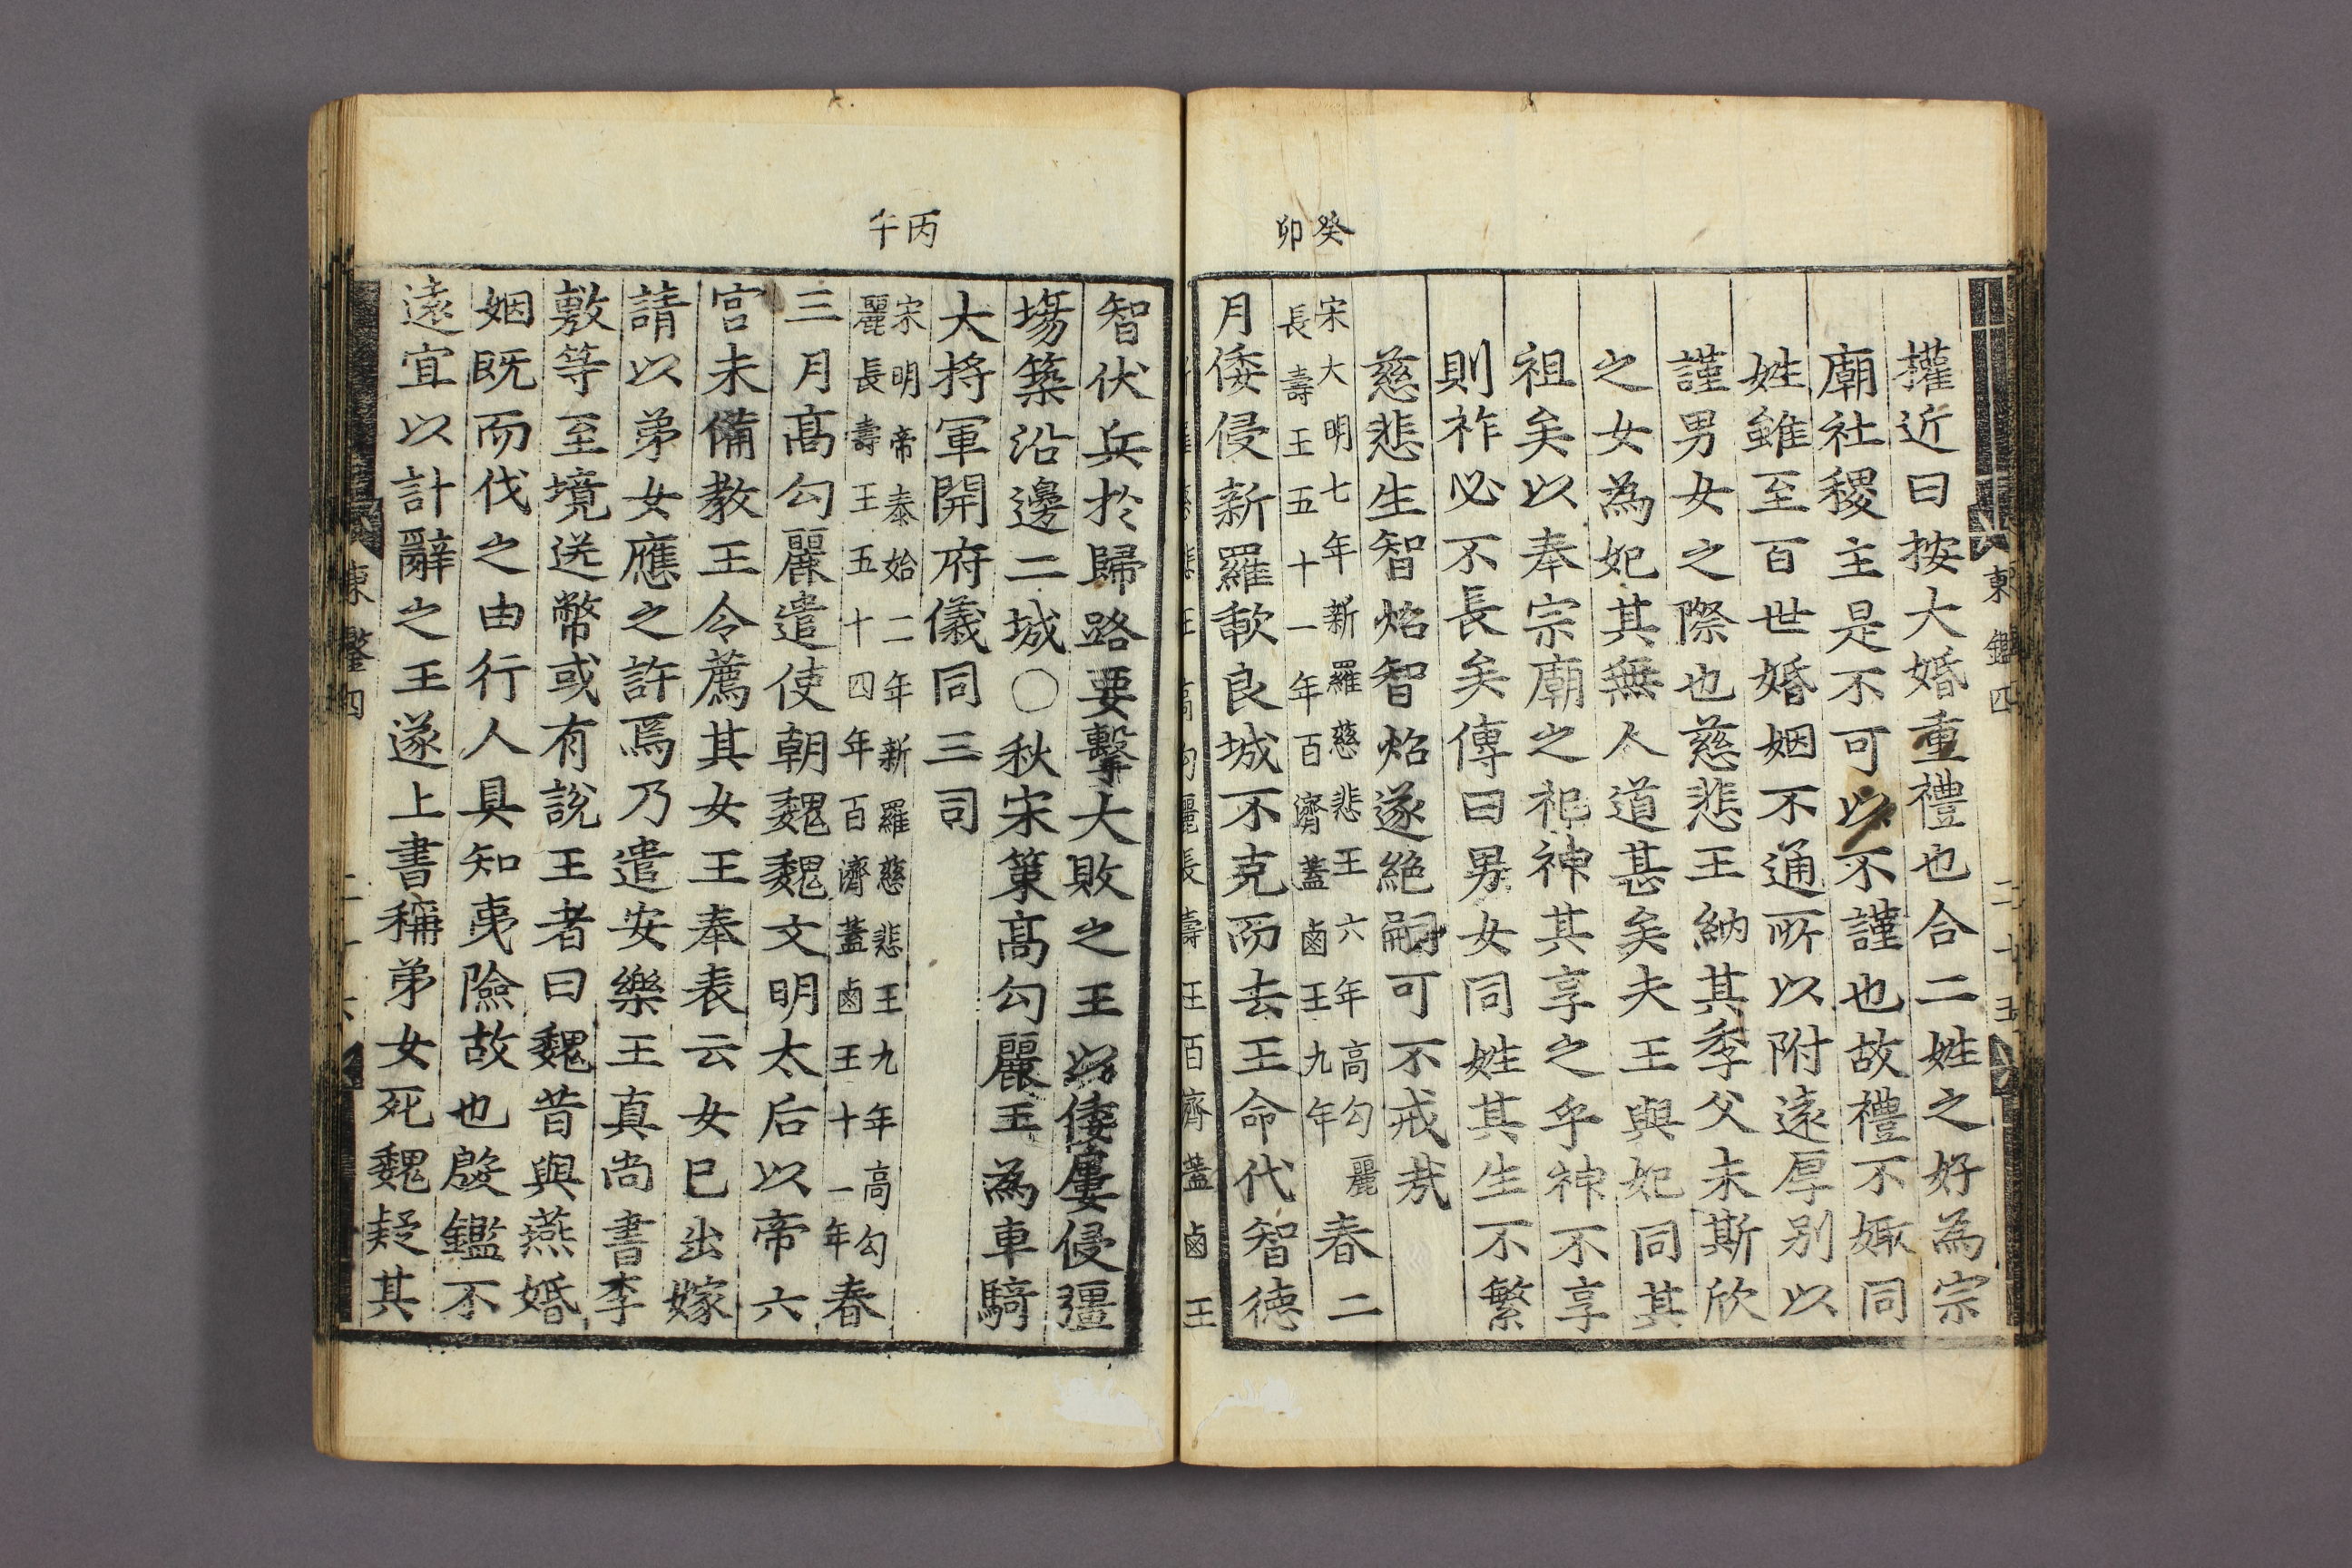 癸卯
東鑑四
二十五
權近曰按大婚重禮也合二姓之好為宗
廟社稷主是不可以不謹也故禮不娵同
姓雖至百世婚姻不通所以附遠厚別以
謹男女之際也慈悲王納其季父未斯欣
之女為妃其無人道甚矣夫王與妃同其
祖矣以奉宗廟之祀神其享之乎神不享
則祚必不長矣傳曰男女同姓其生不繁
慈悲生智炤智炤遂絶嗣可不戒㢤
宋大明七年新羅慈悲王六年高勾麗
長壽王五十一年百濟蓋鹵王九年
春二
月倭侵新羅歃良城不克而去王命代智德
丙午
智伏兵於歸路要擊大敗之王以倭屢侵疆
場築沿邊二城○秋宋策高勾麗王為車騎
大將軍開府儀同三司
宋明帝泰始二年新羅慈悲王九年高勾
麗長壽王五十四年百濟蓋鹵王十一年
春
三月高勾麗遣使朝魏魏文明太后以帝六
宮未備教王令薦其女王奉表云女已出嫁
請以弟女應之許焉乃遣安樂王真尚書李
敷等至境送幣或有說王者曰魏昔與燕婚
姻既而伐之由行人具知夷險故也殷鑑不
遠宜以計辭之王遂上書稱弟女死魏疑其
東鑒四